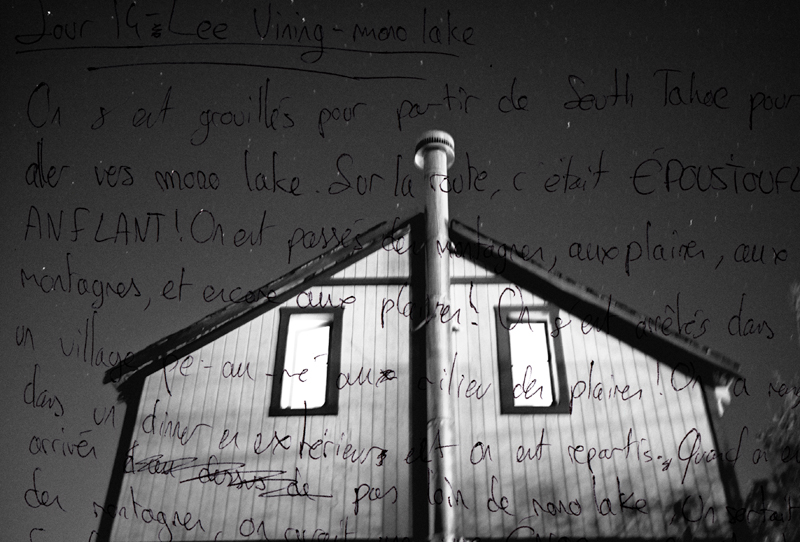 Jour 14: Lee Vining - mono lake
On s est grouillés pour partir de South Tahoe pour
aller vers mono lake. Sur la route, c était ÉPOUSTOUFL
ANFLANT! On est passés des montagnes, aux plaines, aux
montagnes, et encore aux plaines! On s est arrêtés dans
un village pé-au-mé au milieu des plaines! On a
dans un dinner en extérieurs et on est repartis. Quand on
arrivés pas loin de mono lake. On sortait
des montagnes, on avait